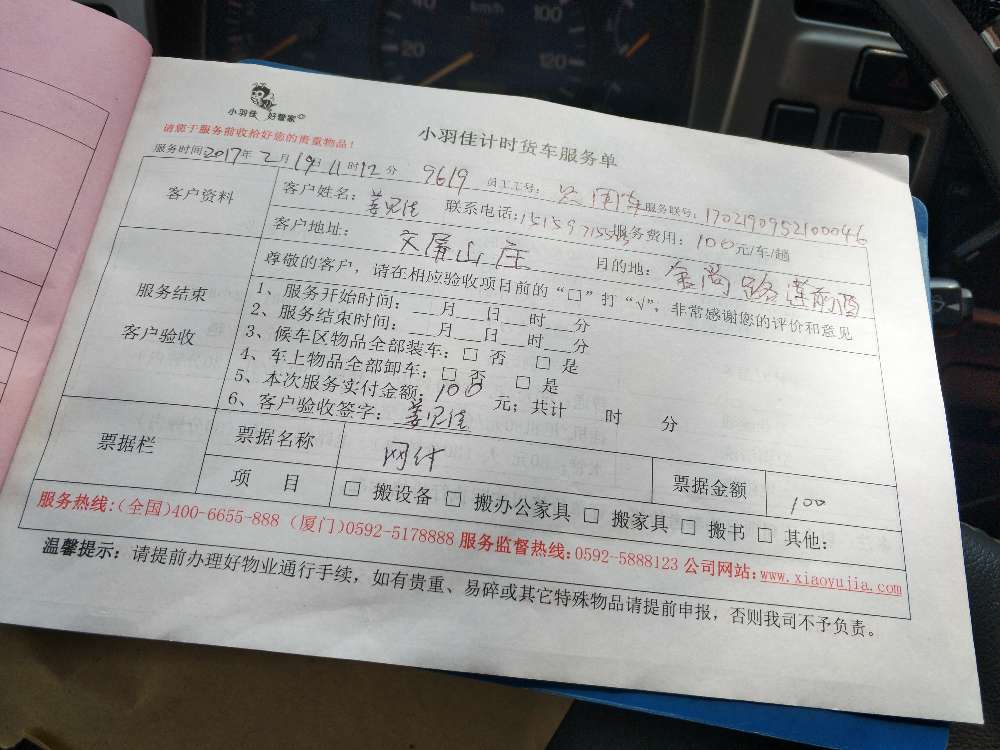 小羽佳 好管家
小羽佳计时货车服务单
请您于服务前收拾好您的贵重物品！
服务时间2017年2月19日11时12分 9619 员工工号： 服务联号：1702190952100046
客户资料
客户姓名： 联系电话： 服务费用：100元/车/趟
客户地址： 文屏山庄 目的地：金尚路莲前西
服务结束
客户验收
尊敬的客户，请在相应验收项目前的“□”打“√”，非常感谢您的评价和意见
1、服务开始时间：___月___日___时___分
2、服务结束时间：___月___日___时___分
3、候车区物品全部装车：□ 否 □ 是
4、车上物品全部卸车：□ 否 □ 是
5、本次服务实付金额：100元；共计 时 分
6、客户验收签字：
票据栏
票据名称 网付 票据金额 100
项 目 □ 搬设备 □ 搬办公家具 □ 搬家具 □ 搬书 □ 其他：
服务热线：(全国)400-6655-888 (厦门)0592-5178888 服务监督热线：0592-5888123 公司网站：www.xiaoyujia.com
温馨提示：请提前办理好物业通行手续，如有贵重、易碎或其它特殊物品请提前申报，否则我司不予负责。
20
40
100
120